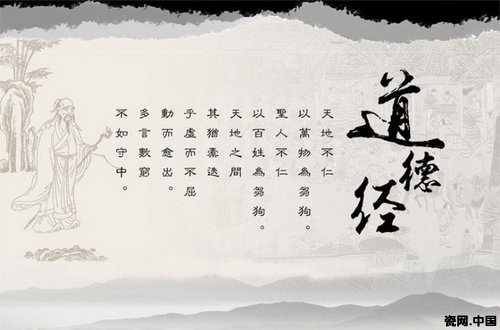 道德经
天地不仁
以萬物為芻狗。
聖人不仁
以百姓為芻狗。
天地之間
其猶橐透
乎虛而不屈
動而愈出。
多言數窮
不如守中。
瓷网.中国